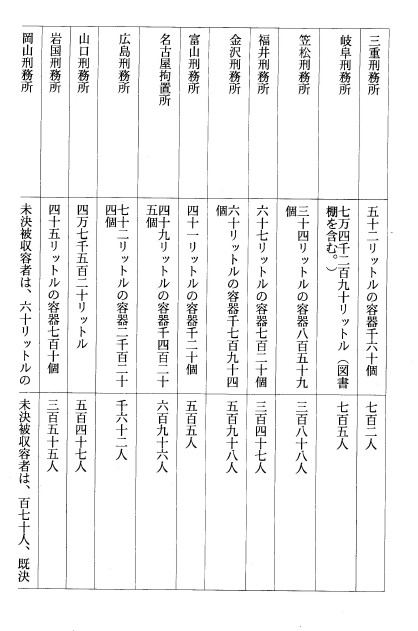 三重刑務所
五十二リットルの容器千六十個
七百二人
岐阜刑務所
七万四千二百九十リットル（図書
棚を含む。）
七百五人
笠松刑務所
三十四リットルの容器八百五十九
個
三百八十八人
福井刑務所
六十七リットルの容器七百二十個
三百四十七人
金沢刑務所
六十リットルの容器千七百九十四
個
五百九十八人
富山刑務所
四十一リットルの容器千二十個
五百五人
名古屋拘置所
四十九リットルの容器千四百二十
五個
六百九十六人
広島刑務所
七十二リットルの容器二千百二十
四個
千六十二人
山口刑務所
四万七千五百二十リットル
五百四十七人
岩国刑務所
四十五リットルの容器七百十個
三百五十五人
岡山刑務所
未決被収容者は、六十リットルの
未決被収容者は、百七十人、既決